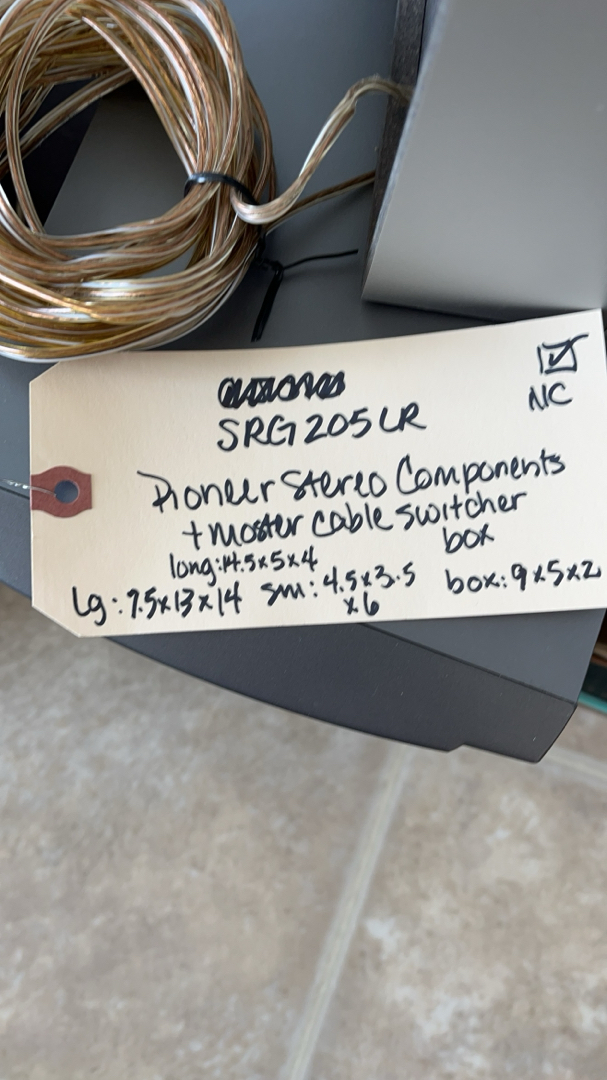 NC
SRG205LR
Pioneer Stereo Components
+ moster cable switcher
box
long: 14.5x5x4
Lg: 7.5x13x14 sm: 4.5x3.5 box: 9x5x2
x6